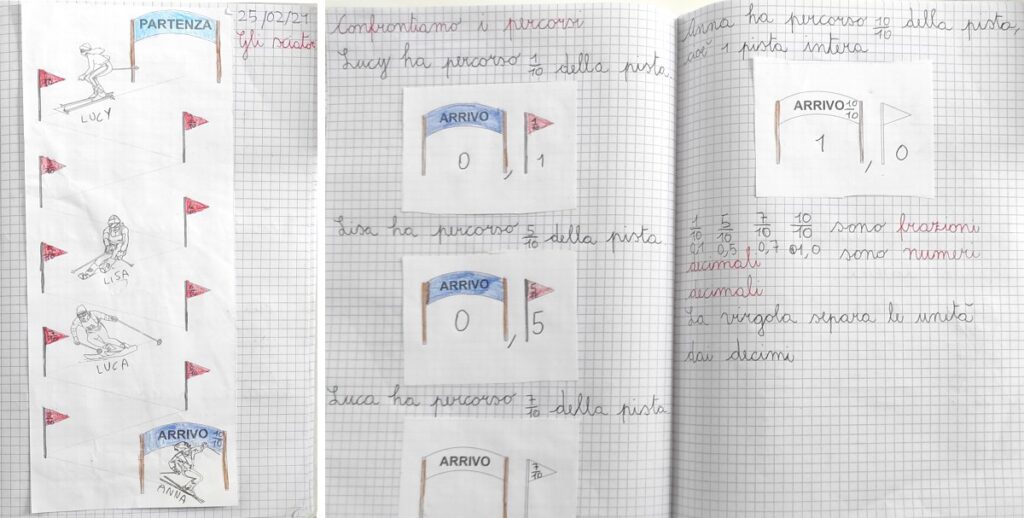 PARTENZA
25/02/21
Gli sciator
LUCY
LISA
LUCA
ARRIVO 10/10
ANNA
Confrontiamo i percorsi
Lucy ha percorso 1/10 della pista
ARRIVO 1/10
0 , 1
Lisa ha percorso 5/10 della pista
ARRIVO 5/10
0 , 5
Luca ha percorso 7/10 della pista
ARRIVO 7/10
Anna ha percorso 10/10 della pista,
cioè 1 pista intera
ARRIVO 10/10
1 , 0
1/10 5/10 7/10 10/10 sono frazioni
0,1 0,5 0,7 1,0 sono numeri
decimali
decimali
La virgola separa le unità
dai decimi